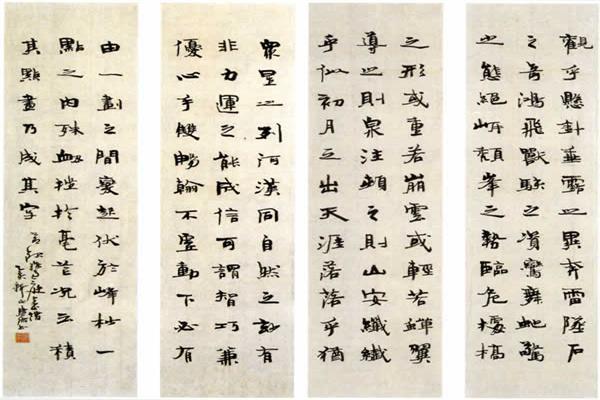 觀乎懸針垂露之異奔雷墜石
之奇鴻飛獸駭之資鸞舞蛇驚
之態絕岸頹峯之勢臨危據槁
之形或重若崩雲或輕若蟬翼
導之則泉注頓之則山安纖纖
乎似初月之出天涯落落乎猶
眾星之列河漢同自然之妙有
非力運之能成信可謂智巧兼
優心手雙暢翰不虛動下必有
由一劃之間變起伏於峰杪一
點之內殊衄挫於毫芒況云積
其點畫乃成其字